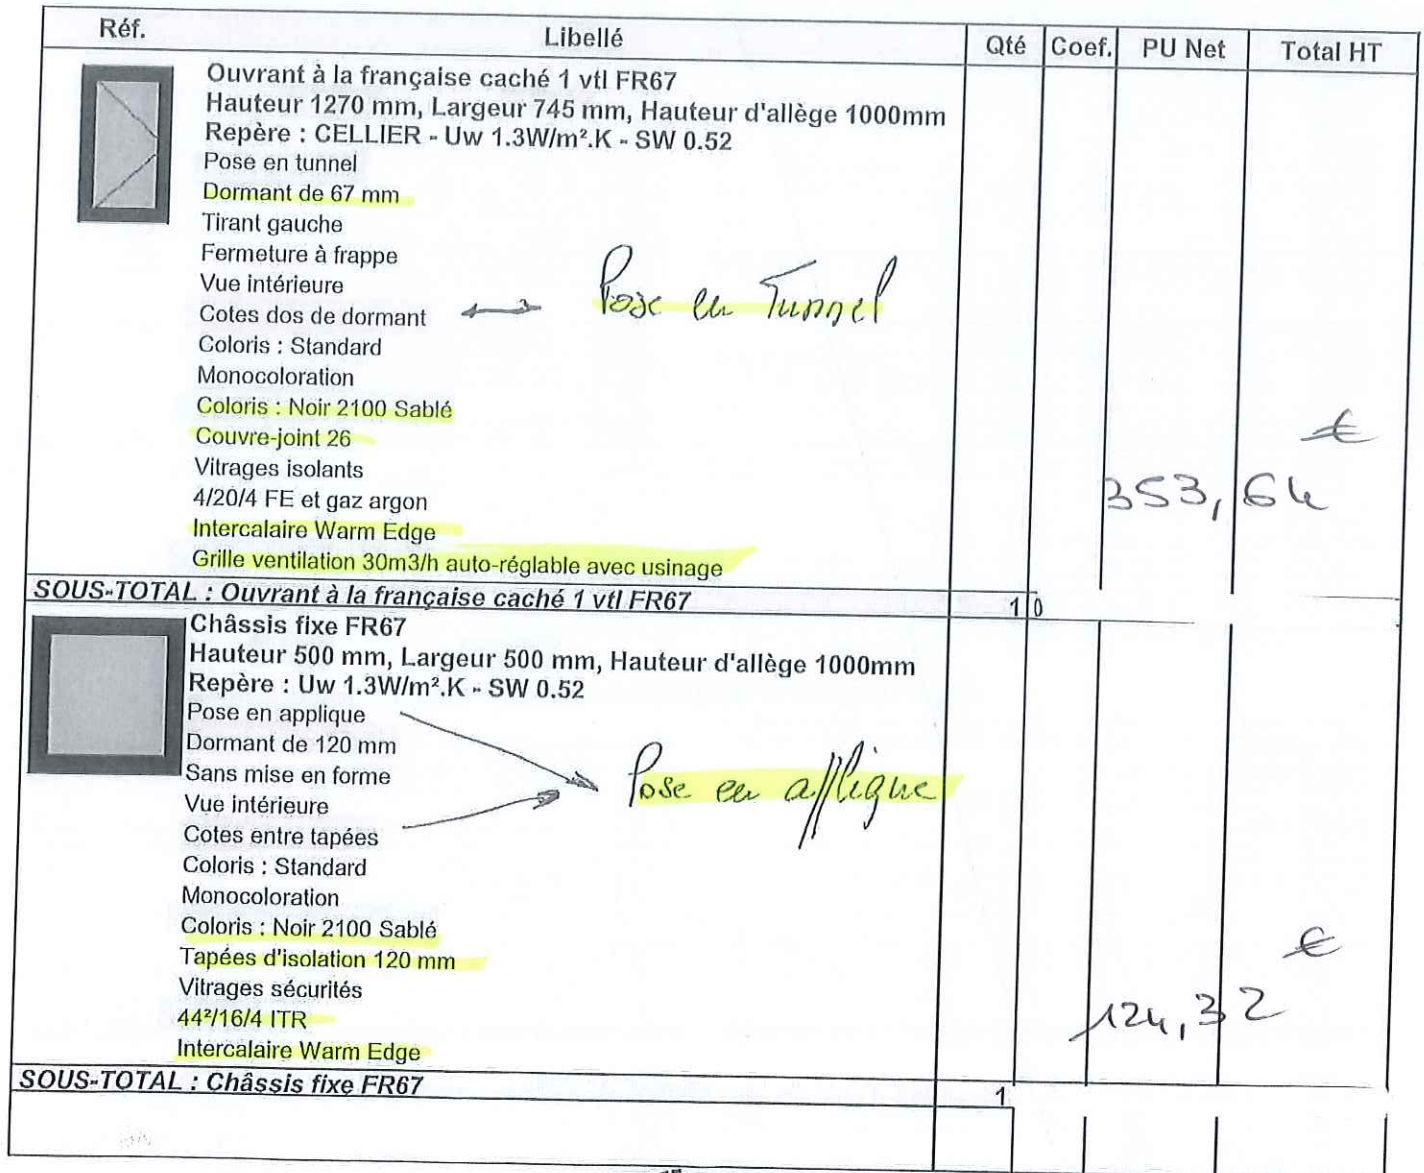 Réf. Libellé Qté Coef. PU Net Total HT
Ouvrant à la française caché 1 vtl FR67
Hauteur 1270 mm, Largeur 745 mm, Hauteur d'allège 1000mm
Repère : CELLIER - Uw 1.3W/m².K - SW 0.52
Pose en tunnel
Dormant de 67 mm
Tirant gauche
Fermeture à frappe
Vue intérieure
Cotes dos de dormant Pose en Tunnel
Coloris : Standard
Monocoloration
Coloris : Noir 2100 Sablé
Couvre-joint 26 €
Vitrages isolants
4/20/4 FE et gaz argon 353,64
Intercalaire Warm Edge
Grille ventilation 30m3/h auto-réglable avec usinage
SOUS-TOTAL : Ouvrant à la française caché 1 vtl FR67 1 0
Châssis fixe FR67
Hauteur 500 mm, Largeur 500 mm, Hauteur d'allège 1000mm
Repère : Uw 1.3W/m².K - SW 0.52
Pose en applique
Dormant de 120 mm
Sans mise en forme Pose en applique
Vue intérieure
Cotes entre tapées
Coloris : Standard
Monocoloration
Coloris : Noir 2100 Sablé €
Tapées d'isolation 120 mm
Vitrages sécurités
44²/16/4 ITR 124,32
Intercalaire Warm Edge
SOUS-TOTAL : Châssis fixe FR67 1